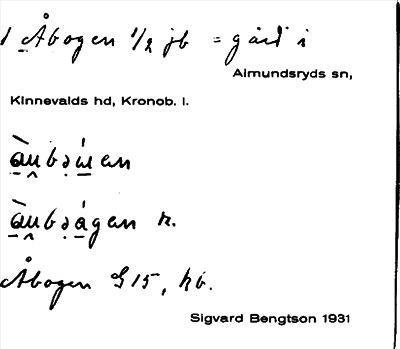 1 Åbogen 1/2 jb = gård i
Almundsryds sn,
Kinnevalds hd, Kronob. l.
n.
Åbogen G15, hb.
Sigvard Bengtson 1931